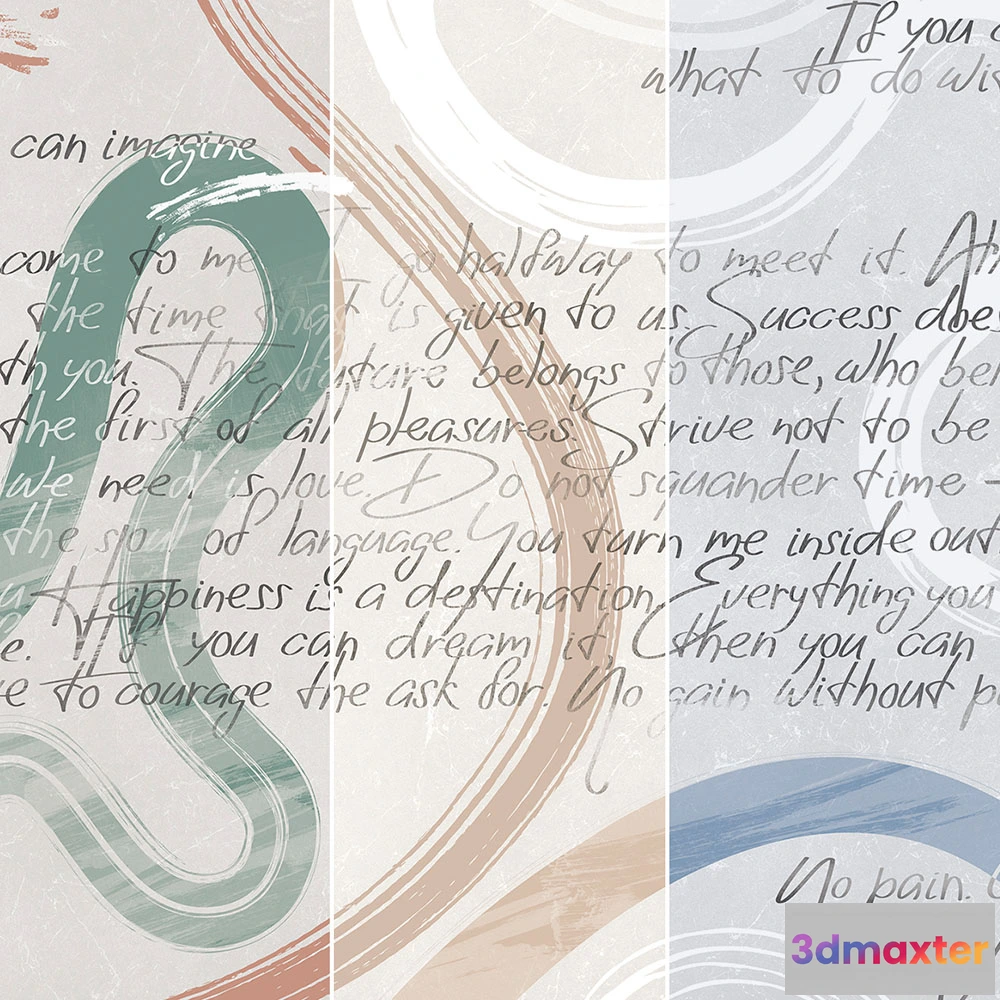 If you c
what to do wi
can imagine
come to me I go halfway to meet it. Ath
the time that is given to us. Success does
th you. The future belongs to those, who be
the first of all pleasures. Strive not to be
we need is love. Do not squander time -
the soul of language. You turn me inside out
Happiness is a destination, Everything you
e. If you can dream it, then you can
e to courage the ask for. No gain without p
No pain.
3dmaxter